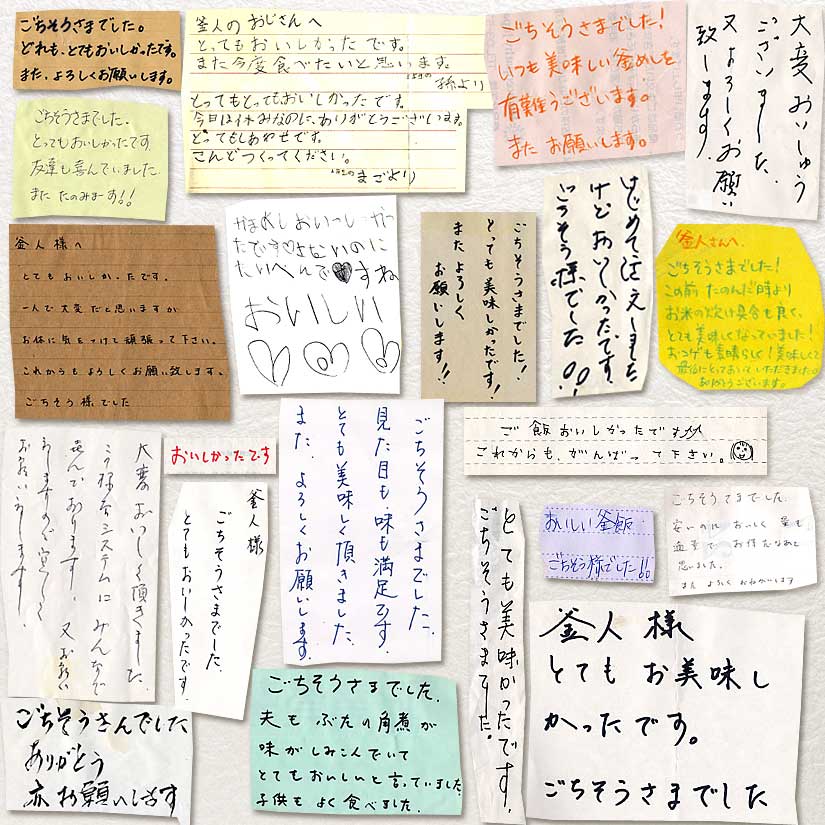 ごちそうさまでした。
どれも、とてもおいしかったです。
また、よろしくお願いします。
釜人のおじさんへ
とってもおいしかったです。
また今度食べたいと思います。
孫より
とってもとってもおいしかったです。
今日は休みなのに、ありがとうございます。
とってもしあわせです。
こんどつくってください。
まごより
ごちそうさまでした!
いつも美味しい釜めしを
有難うございます。
また お願いします。
大変おいしゅう
ございました。
又よろしくお願い
致します。
ごちそうさまでした。
とってもおいしかったです。
友達も喜んでいました。
また たのみまーす!!
釜人様へ
とてもおいしかったです。
一人で大変だと思いますが
お体に気をつけて頑張って下さい。
これからもよろしくお願い致します。
ごちそう様でした
かまめしおいしーかっ
たです♡
のに
たいへんで♥すね
おいしい
ごちそうさまでした!
とっても美味しかったです!!
また よろしく
お願いします!!
はじめて注文しました
けどおいしかったです。
ごちそう様でした
釜人さんへ
ごちそうさまでした!
この前 たのんだ時より
お米の炊け具合も良く、
とても美味しくなっていました!
おコゲも素晴らしく!美味しくて
最後にとっておいていただきました。
ありがとうございます。
大変おいしく頂きました。
この様なシステムに みんなで
喜んでおります。又お願い
おいしかったです
釜人様
ごちそうさまでした。
とてもおいしかったです。
ごちそうさまでした。
見た目も、味も満足です。
とても美味しく頂きました。
また、よろしくお願いします。
ご飯おいしかったです
これからも、がんばって下さい。
とても美味かったです。
ごちそうさまでした。
おいしい釜飯
ごちそう様でした!!
ごちそうさまでした。
安いのに おいしく 量も
思いました。
また よろしく おねがいします
釜人様
とても お美味し
かったです。
ごちそうさまでした
ごちそうさんでした
ありがとう
亦お願いします
ごちそうさまでした。
夫も ぶたの角煮が
味がしみこんでいて
とてもおいしいと言っていました。
子供も よく食べました。